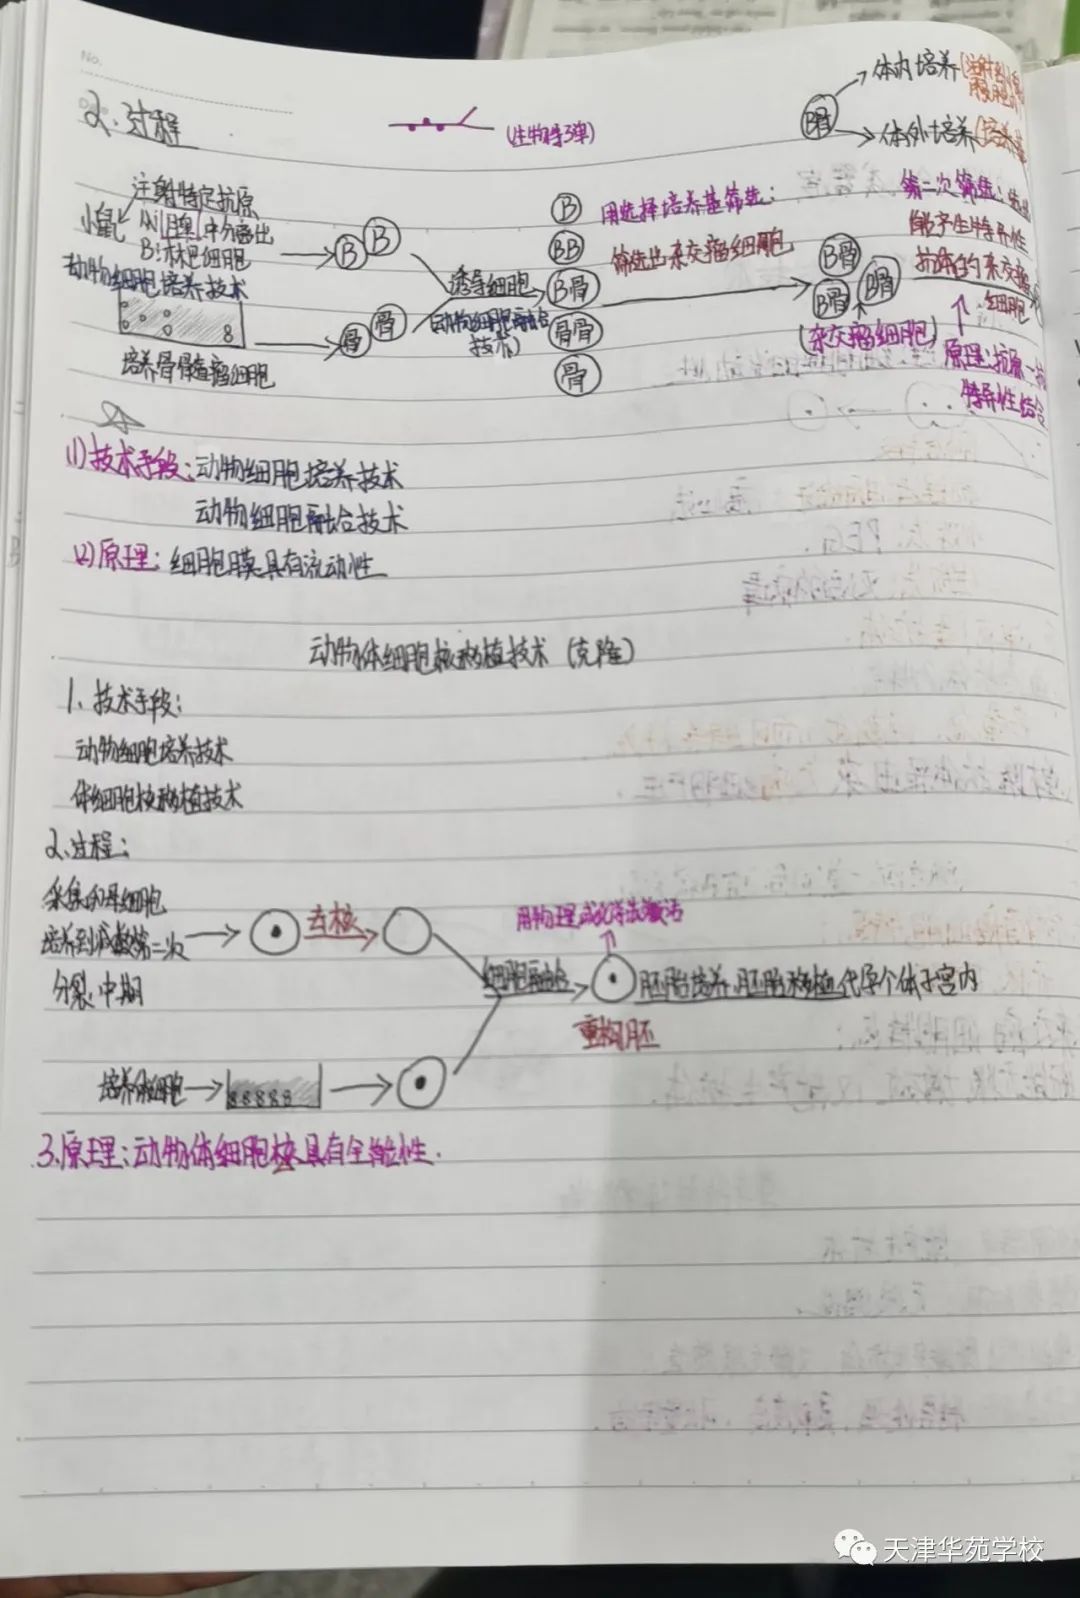 No.
2.过程
(生物导弹)
B骨
体内培养
体外培养
小鼠
注射特定抗原
从脾中分离出
B淋巴细胞
动物细胞培养技术
培养骨髓瘤细胞
B B
骨 骨
诱导细胞
(动物细胞融合
技术)
B
BB
B骨
骨骨
骨
用选择培养基筛选:
筛选出杂交瘤细胞
B骨
B骨 B骨
(杂交瘤细胞)
第二次筛选:
能产生特异性
抗体的杂交瘤
细胞
原理:抗原-抗
特异性结合
(1)技术手段:动物细胞培养技术
动物细胞融合技术
(2)原理:细胞膜具有流动性
动物体细胞核移植技术(克隆)
1.技术手段:
动物细胞培养技术
体细胞核移植技术
2.过程:
采集卵母细胞
培养到减数第二次
分裂中期
去核
细胞融合
用物理或化学法激活
重构胚
胚胎培养.胚胎移植.代孕个体子宫内
培养体细胞
3.原理:动物体细胞核具有全能性.
天津华苑学校